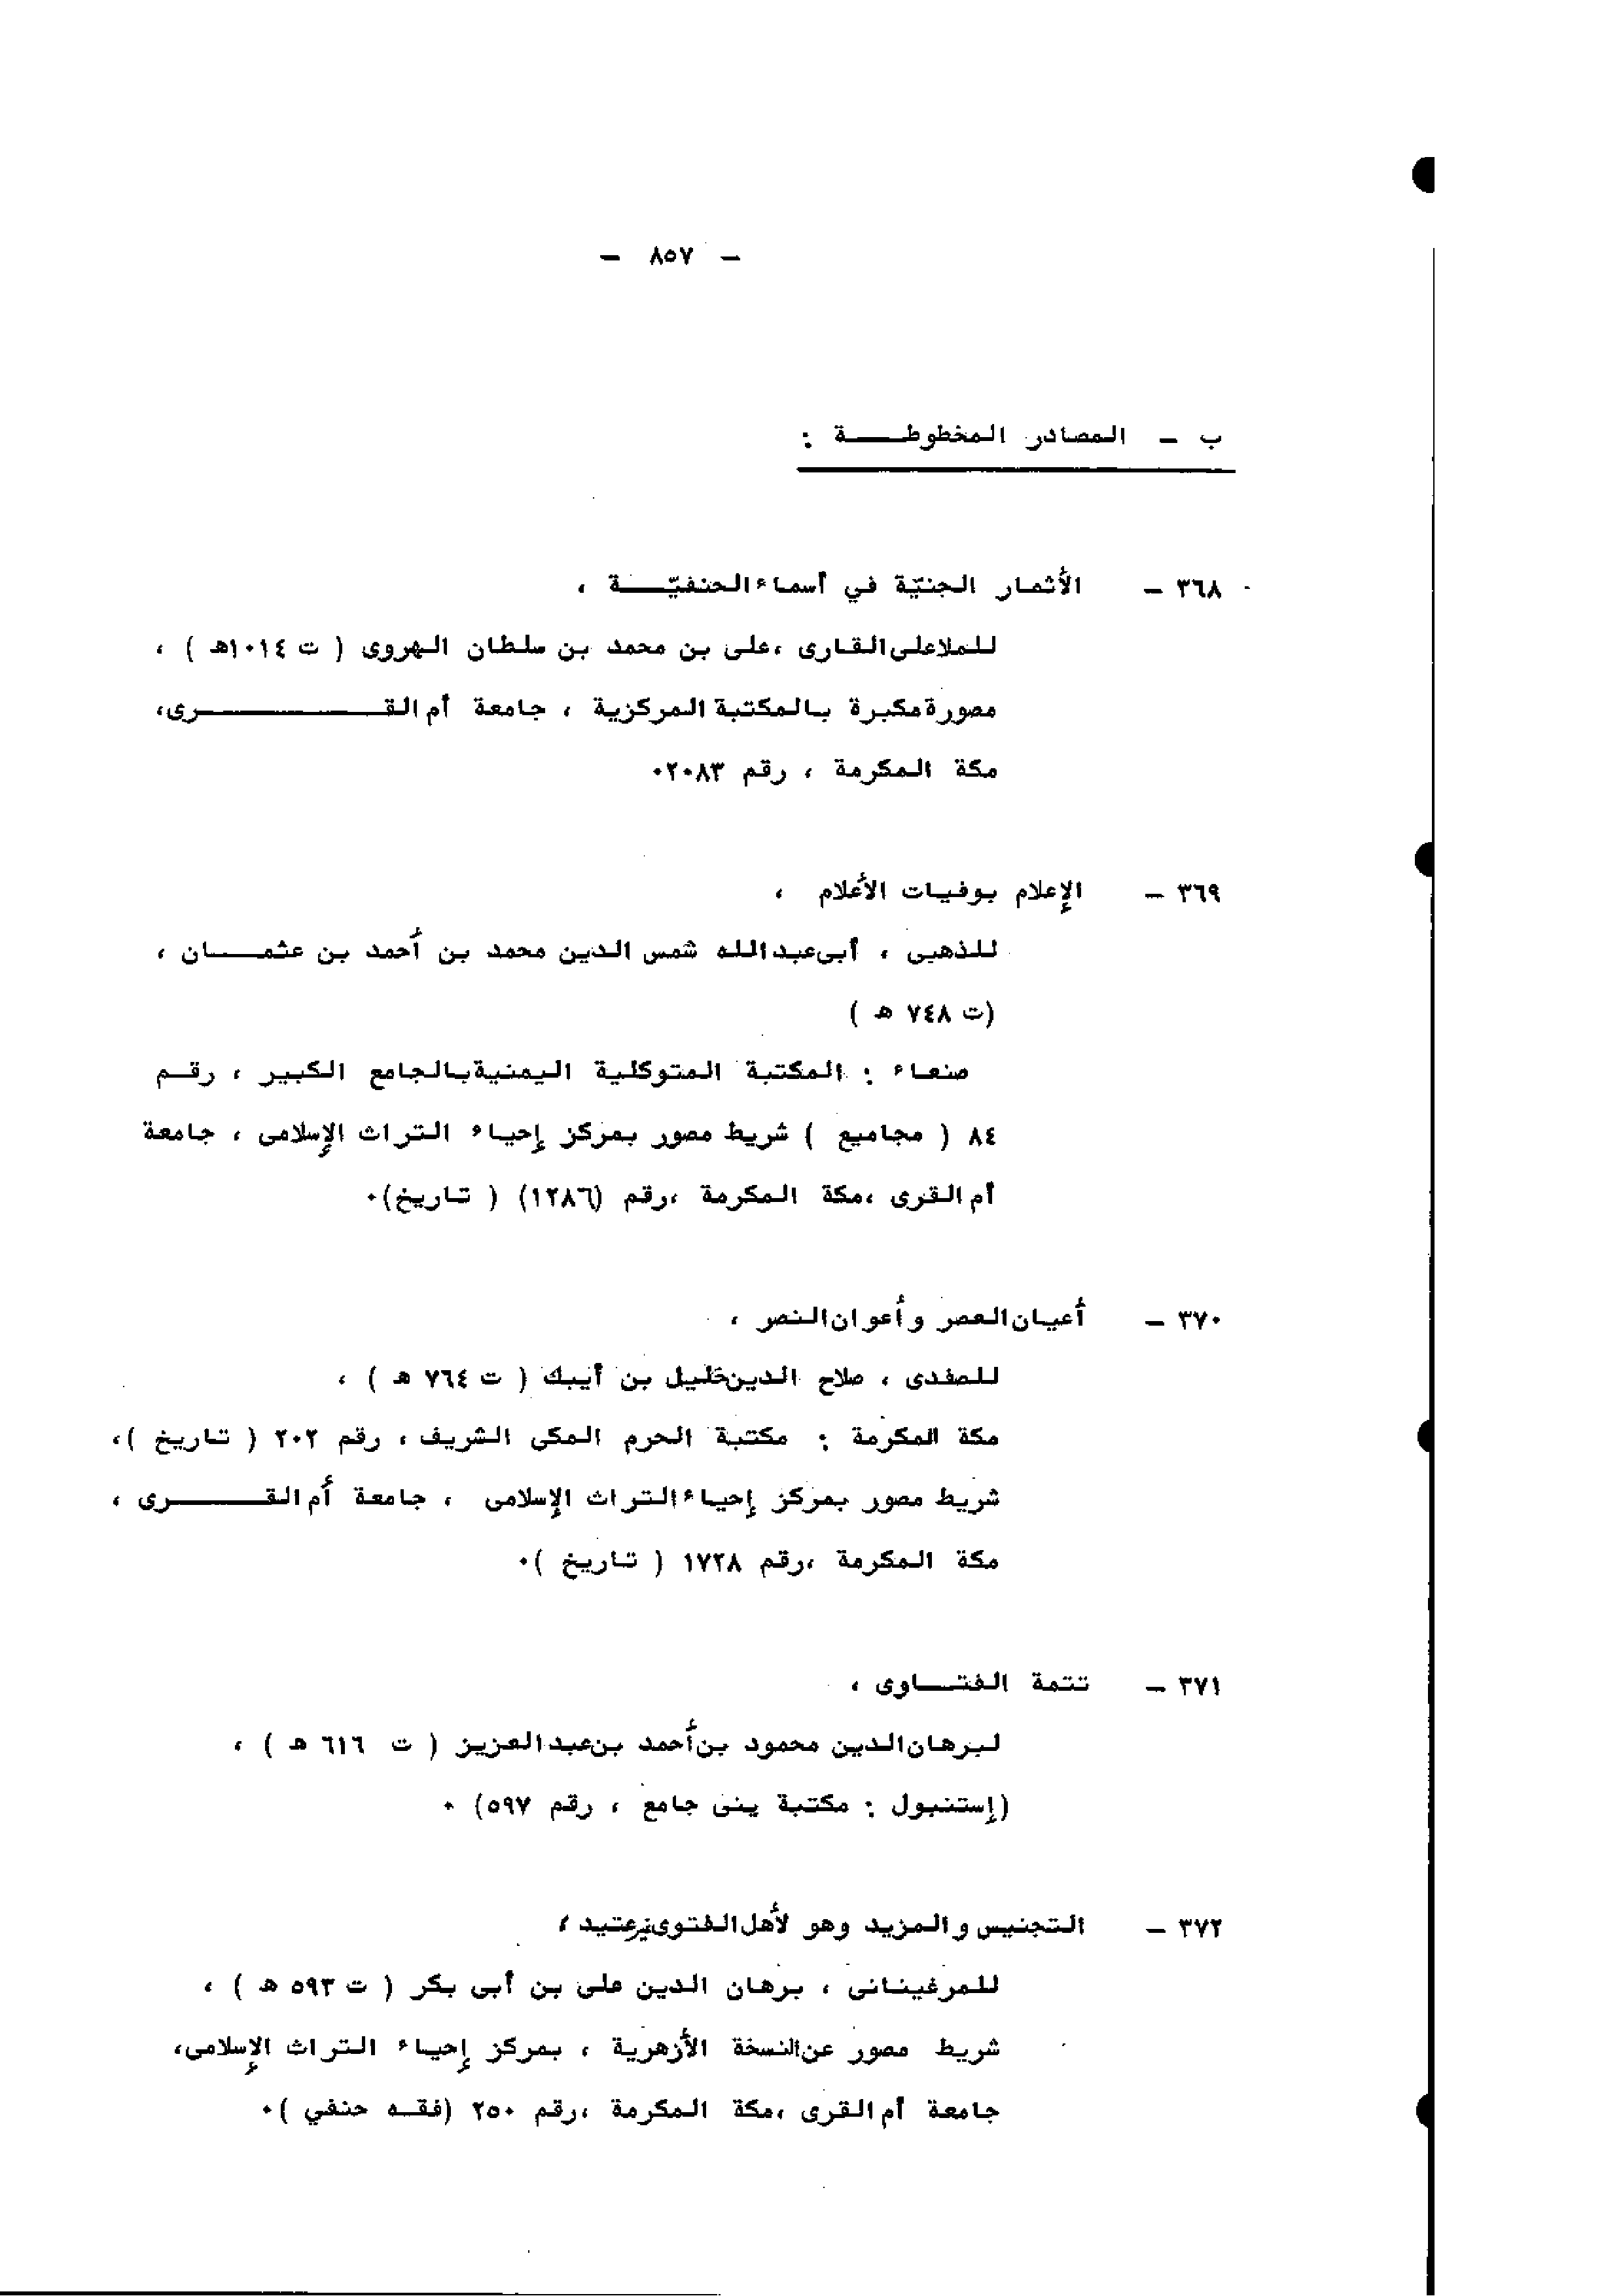 - ٨٥٧ -
ب - المصادر المخطوطة :
٣٦٨ - الأثمار الجنيّة في أسماء الحنفيّة ،
للملا علي القارى ، على بن محمد بن سلطان الهروى ( ت ١٠١٤هـ ) ،
مصورة مكبرة بالمكتبة المركزية ، جامعة أم القرى،
مكة المكرمة ، رقم ٢٠٨٣٠
٣٦٩ - الإعلام بوفيات الأعلام ،
للذهبى ، أبى عبد الله شمس الدين محمد بن أحمد بن عثمان ،
(ت ٧٤٨ هـ )
صنعاء : المكتبة المتوكلية اليمنية بالجامع الكبير ، رقم
٨٤ ( مجاميع ) شريط مصور بمركز إحياء التراث الإسلامى ، جامعة
أم القرى ،مكة المكرمة ،رقم (١٢٨٦) ( تاريخ)٠
٣٧٠ - أعيان العصر وأعوان النصر ،
للصفدى ، صلاح الدين خليل بن أيبك ( ت ٧٦٤ هـ ) ،
مكة المكرمة : مكتبة الحرم المكى الشريف ، رقم ٢٠٢ ( تاريخ )،
شريط مصور بمركز إحياء التراث الإسلامى ، جامعة أم القرى ،
مكة المكرمة ،رقم ١٧٢٨ ( تاريخ )٠
٣٧١ - تتمة الفتاوى ،
لبرهان الدين محمود بن أحمد بن عبد العزيز ( ت ٦١٦ هـ ) ،
(إستنبول : مكتبة ينى جامع ، رقم ٥٩٧) ٠
٣٧٢ - التجنيس والمزيد وهو لأهل الفتوى غير عتيد ،
للمرغينانى ، برهان الدين على بن أبى بكر ( ت ٥٩٣ هـ ) ،
شريط مصور عن النسخة الأزهرية ، بمركز إحياء التراث الإسلامى،
جامعة أم القرى ،مكة المكرمة ،رقم ٢٥٠ (فقه حنفي )٠